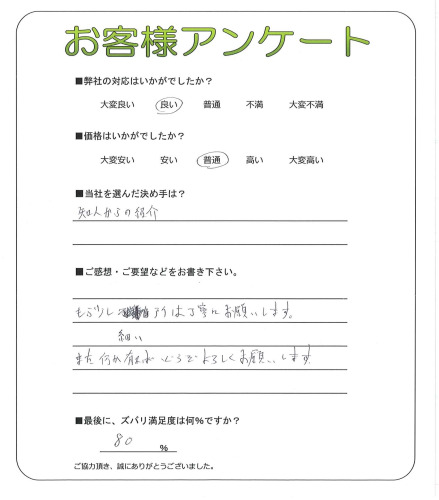 お客様アンケート
■弊社の対応はいかがでしたか？
大変良い 良い 普通 不満 大変不満
■価格はいかがでしたか？
大変安い 安い 普通 高い 大変高い
■当社を選んだ決め手は？
知人からの紹介
■ご感想・ご要望などをお書き下さい。
もう少し 所は丁寧にお願いします。
細い
また何か有れば よろしくお願いします
■最後に、ズバリ満足度は何%ですか？
80 %
ご協力頂き、誠にありがとうございました。